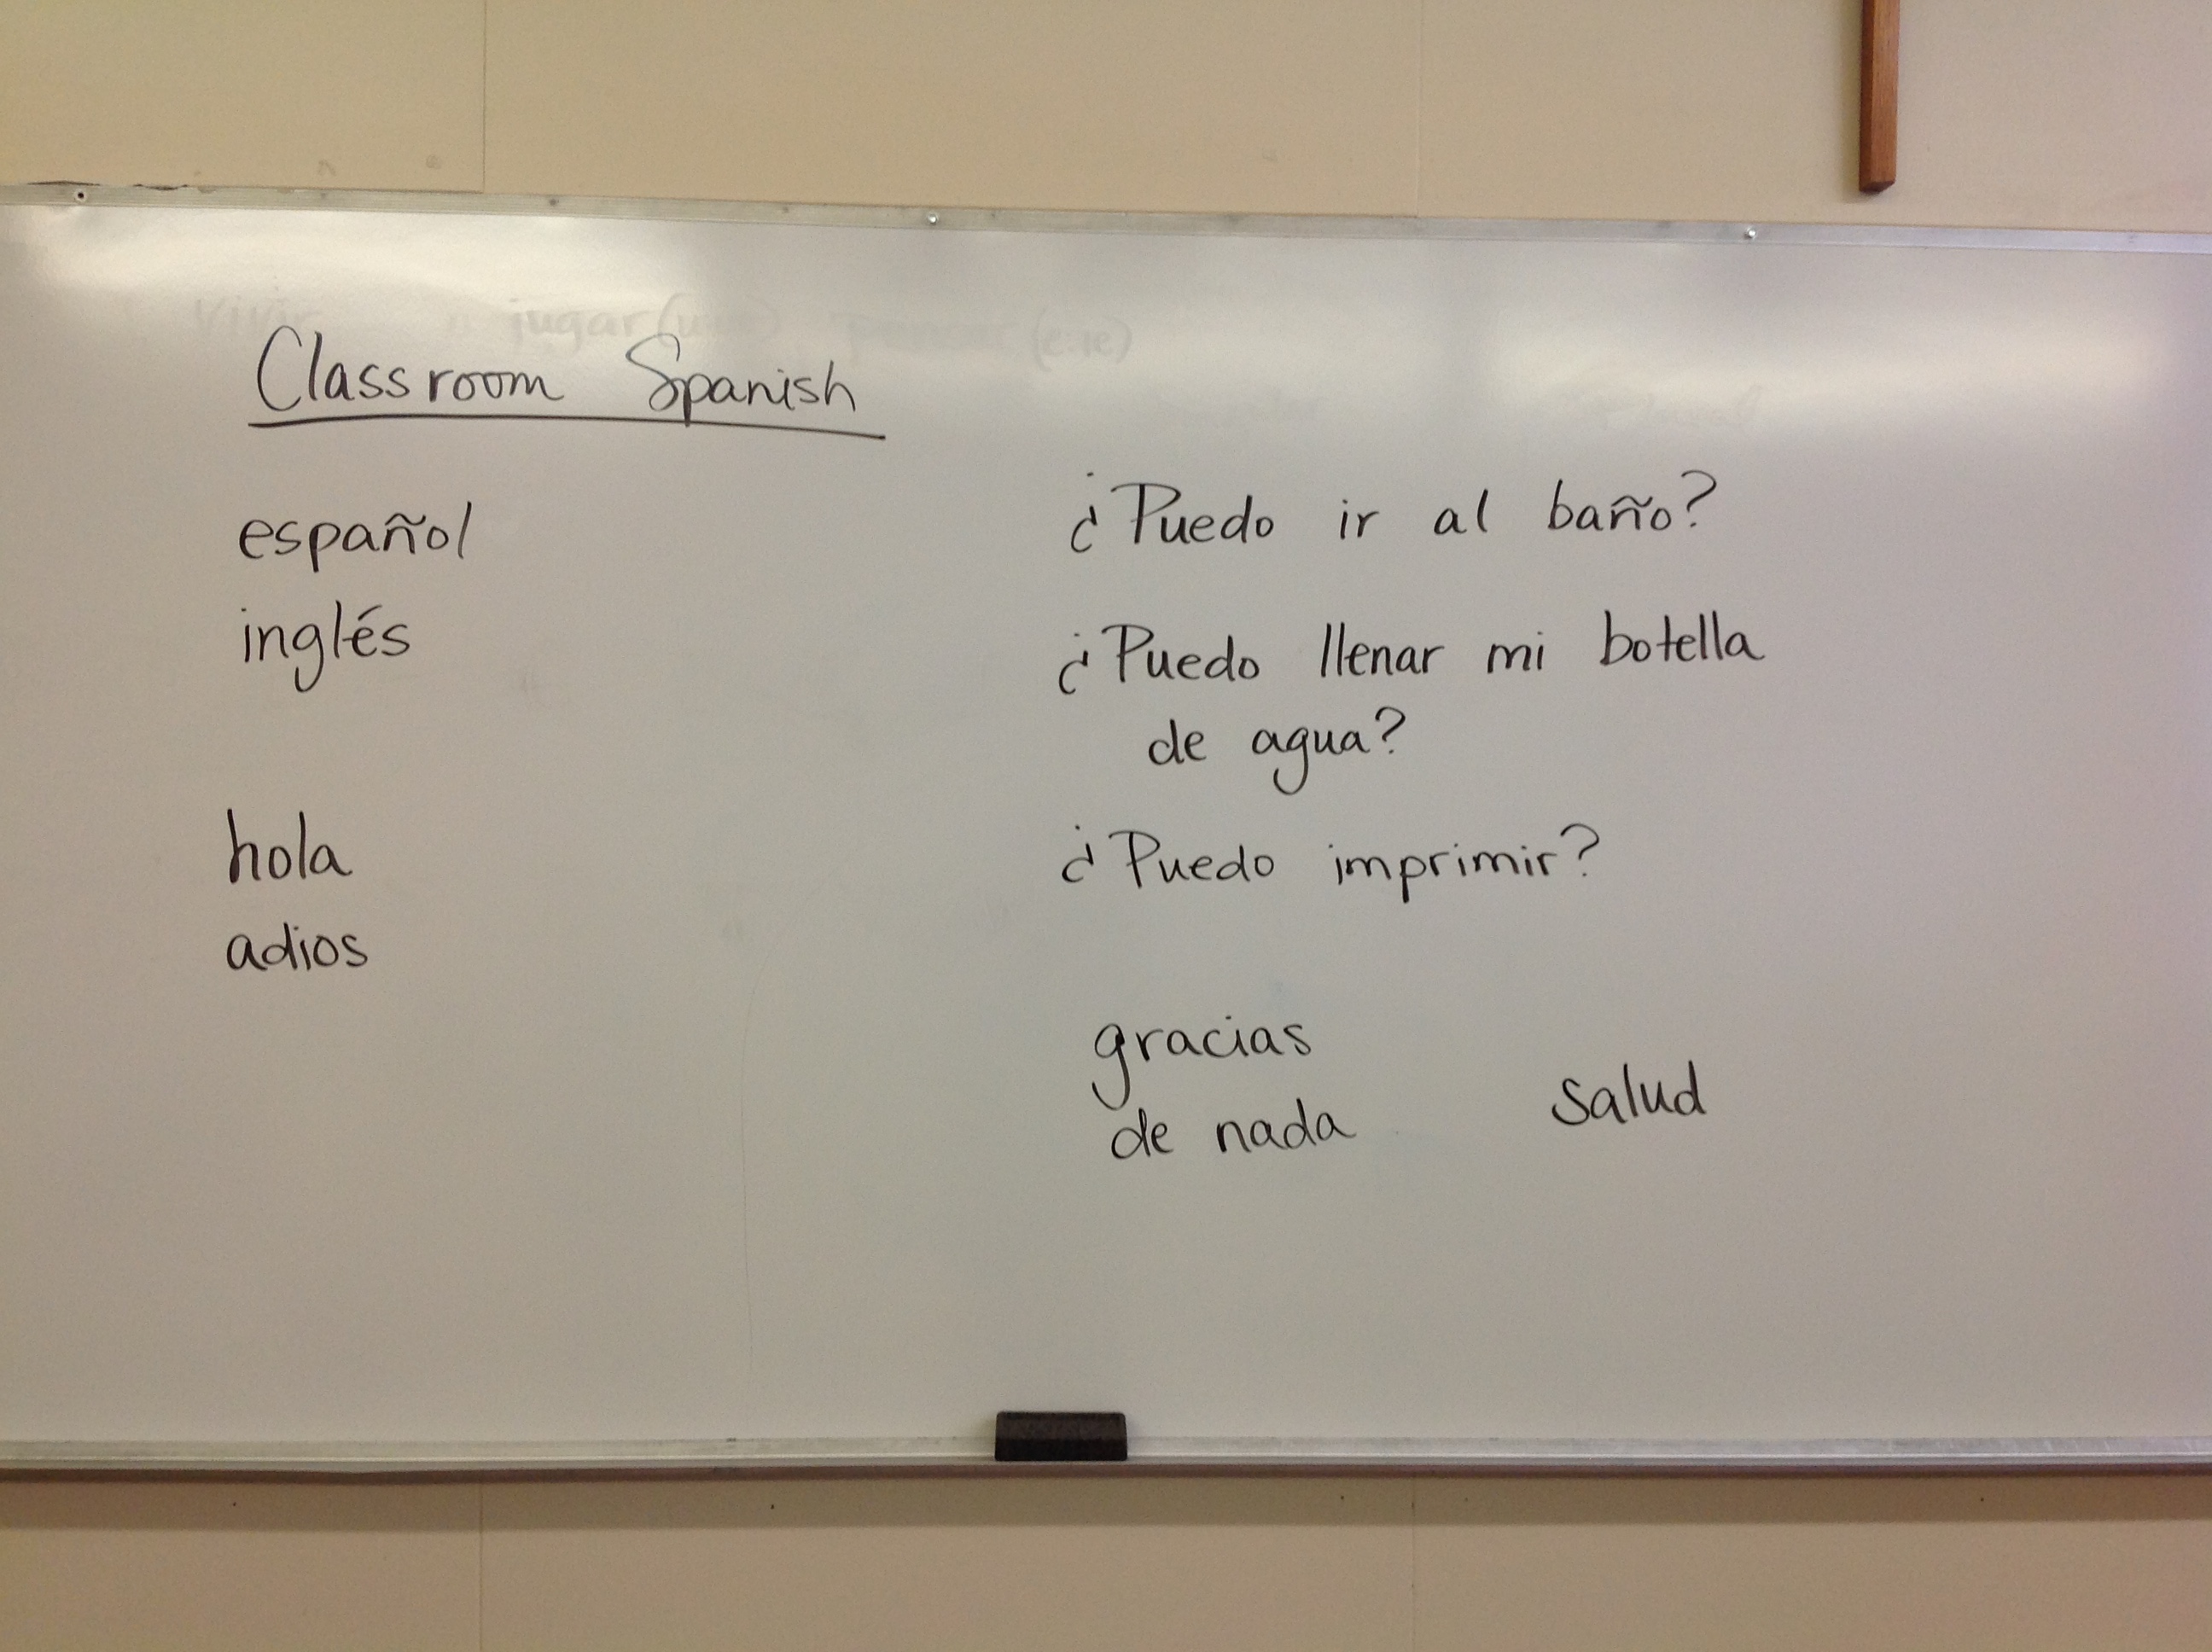 vivir jugar (u
(e:ie)
Classroom Spanish
español
inglés
hola
adios
¿Puedo ir al baño?
¿Puedo llenar mi botella
de agua?
¿Puedo imprimir?
gracias
de nada
salud